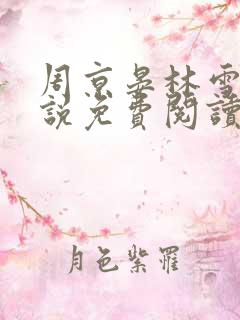 周京晏林雪
說免費閱讀
月色紫罹